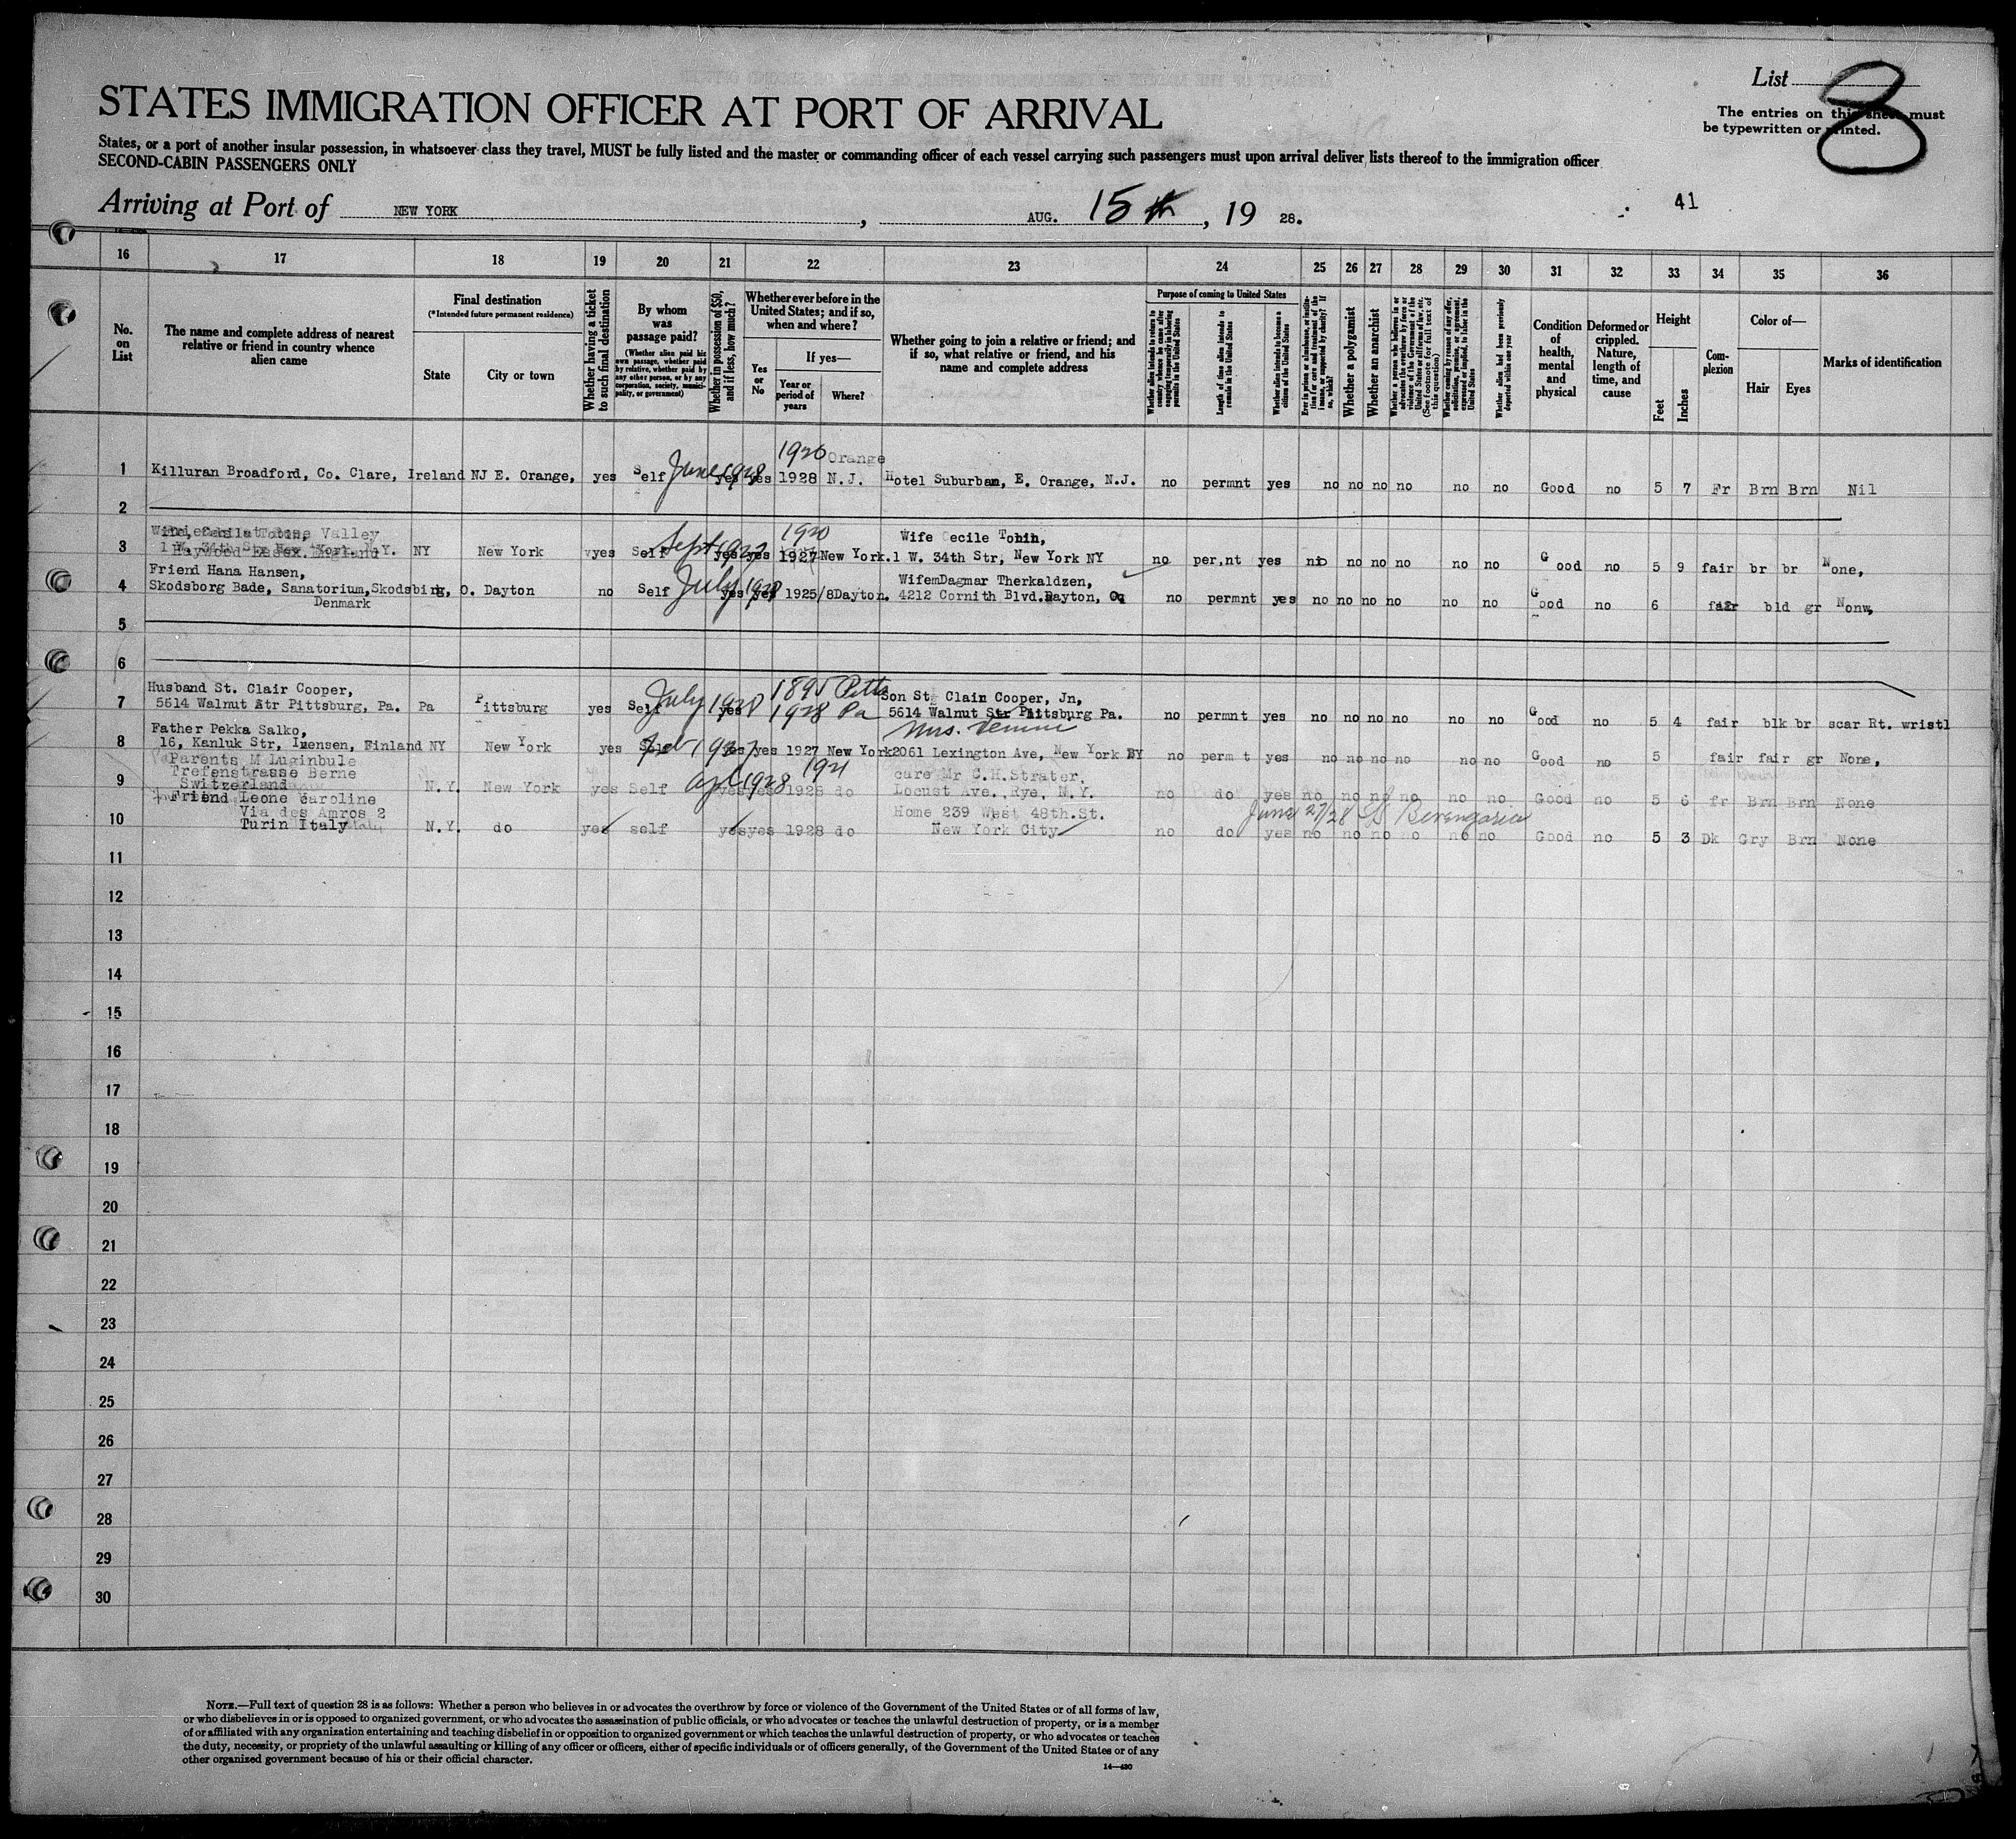 List 8
The entries on this sheet must
be typewritten or printed.
STATES IMMIGRATION OFFICER AT PORT OF ARRIVAL
States, or a port of another insular possession, in whatsoever class they travel, MUST be fully listed and the master or commanding officer of each vessel carrying such passengers must upon arrival deliver lists thereof to the immigration officer
SECOND-CABIN PASSENGERS ONLY
Arriving at Port of NEW YORK, AUG. 15th, 19 28.
41
16 17 18 19 20 21 22 23 24 25 26 27 28 29 30 31 32 33 34 35 36
No. on List
The name and complete address of nearest relative or friend in country whence alien came
Final destination
(*Intended future permanent residence)
State
City or town
Whether having a ticket to such final destination
By whom was passage paid?
(Whether alien paid his own passage, whether paid by relative, whether paid by any other person, or by any corporation, society, municipality, or government)
Whether in possession of $50, and if less, how much?
Whether ever before in the United States; and if so, when and where?
Yes or No
If yes—
Year or period of years
Where?
Whether going to join a relative or friend; and if so, what relative or friend, and his name and complete address
Purpose of coming to United States
Whether alien intends to return to country whence he came after engaging temporarily in laboring pursuits in the United States
Length of time alien intends to remain in the United States
Whether alien intends to become a citizen of the United States
Ever in prison or almshouse, or institution for care and treatment of the insane, or supported by charity? If so, which?
Whether a polygamist
Whether an anarchist
Whether a person who believes in or advocates the overthrow by force or violence of the Government of the United States or all forms of law, etc. (See footnote for full text of this question)
Whether coming by reason of any offer, solicitation, promise, or agreement, expressed or implied, to labor in the United States
Whether alien had been previously deported within one year
Condition of health, mental and physical
Deformed or crippled. Nature, length of time, and cause
Height
Feet
Inches
Complexion
Color of—
Hair
Eyes
Marks of identification
1920 Orange
1 Killuran Broadford, Co. Clare, Ireland NJ E. Orange, yes Self June 1928 yes yes 1928 N.J. Hotel Suburban, E. Orange, N.J. no permnt yes no no no no no no Good no 5 7 Fr Brn Brn Nil
2
1920 Wife Cecile Tobin,
3 NY New York yes Self Sept 1927 yes yes 1927 New York. 1 W. 34th Str, New York NY no per,nt yes no no no no no no Good no 5 9 fair br br None,
Friend Hana Hansen,
4 Skodsborg Bade, Sanatorium, Skodsbirg, O. Dayton no Self July 1928 yes yes 1925/8 Dayton. 4212 Cornith Blvd. Dayton, O. no permnt yes no no no no no no Good no 6 fair bld gr Nonw,
WifemDagmar Therkaldzen,
Denmark
5
6
Husband St. Clair Cooper, 1895 Pitts Son St. Clain Cooper, Jn,
7 5614 Walnut Str Pittsburg, Pa. Pa Pittsburg yes Self July 1928 yes 1928 Pa 5614 Walnut Str Pittsburg Pa. no permnt yes no no no no no no Good no 5 4 fair blk br scar Rt. wristl
Father Pekka Salko, Mrs.
8 16, Kanluk Str, Imensen, Finland NY New York yes Self 1927 yes yes 1927 New York 2061 Lexington Ave, New York NY no perm t yes no no no no no no Good no 5 fair fair gr None,
Parents M Luginbule
Trefenstrasse Berne 1921 care Mr C.H.Strater,
9 Switzerland N.Y. New York yes Self Apl 1928 yes yes 1928 do Locust Ave., Rye, N.Y. no do yes no no no no no no Good no 5 6 fr Brn Brn None
Friend Leone Caroline
Via des Amros 2 Home 239 West 48th.St. June 27/28 S/S Berengaria
10 Turin Italy N.Y. do yes self yes yes 1928 do New York City no do yes no no no no no no Good no 5 3 Dk Gry Brn None
11
12
13
14
15
16
17
18
19
20
21
22
23
24
25
26
27
28
29
30
NOTE.—Full text of question 28 is as follows: Whether a person who believes in or advocates the overthrow by force or violence of the Government of the United States or of all forms of law,
or who disbelieves in or is opposed to organized government, or who advocates the assassination of public officials, or who advocates or teaches the unlawful destruction of property, or is a member
of or affiliated with any organization entertaining and teaching disbelief in or opposition to organized government or which teaches the unlawful destruction of property, or who advocates or teaches
the duty, necessity, or propriety of the unlawful assaulting or killing of any officer or officers, either of specific individuals or of officers generally, of the Government of the United States or of any
other organized government because of his or their official character.
14—430